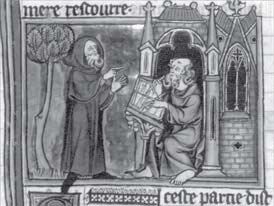 mere rescourre·
ceste partie dist